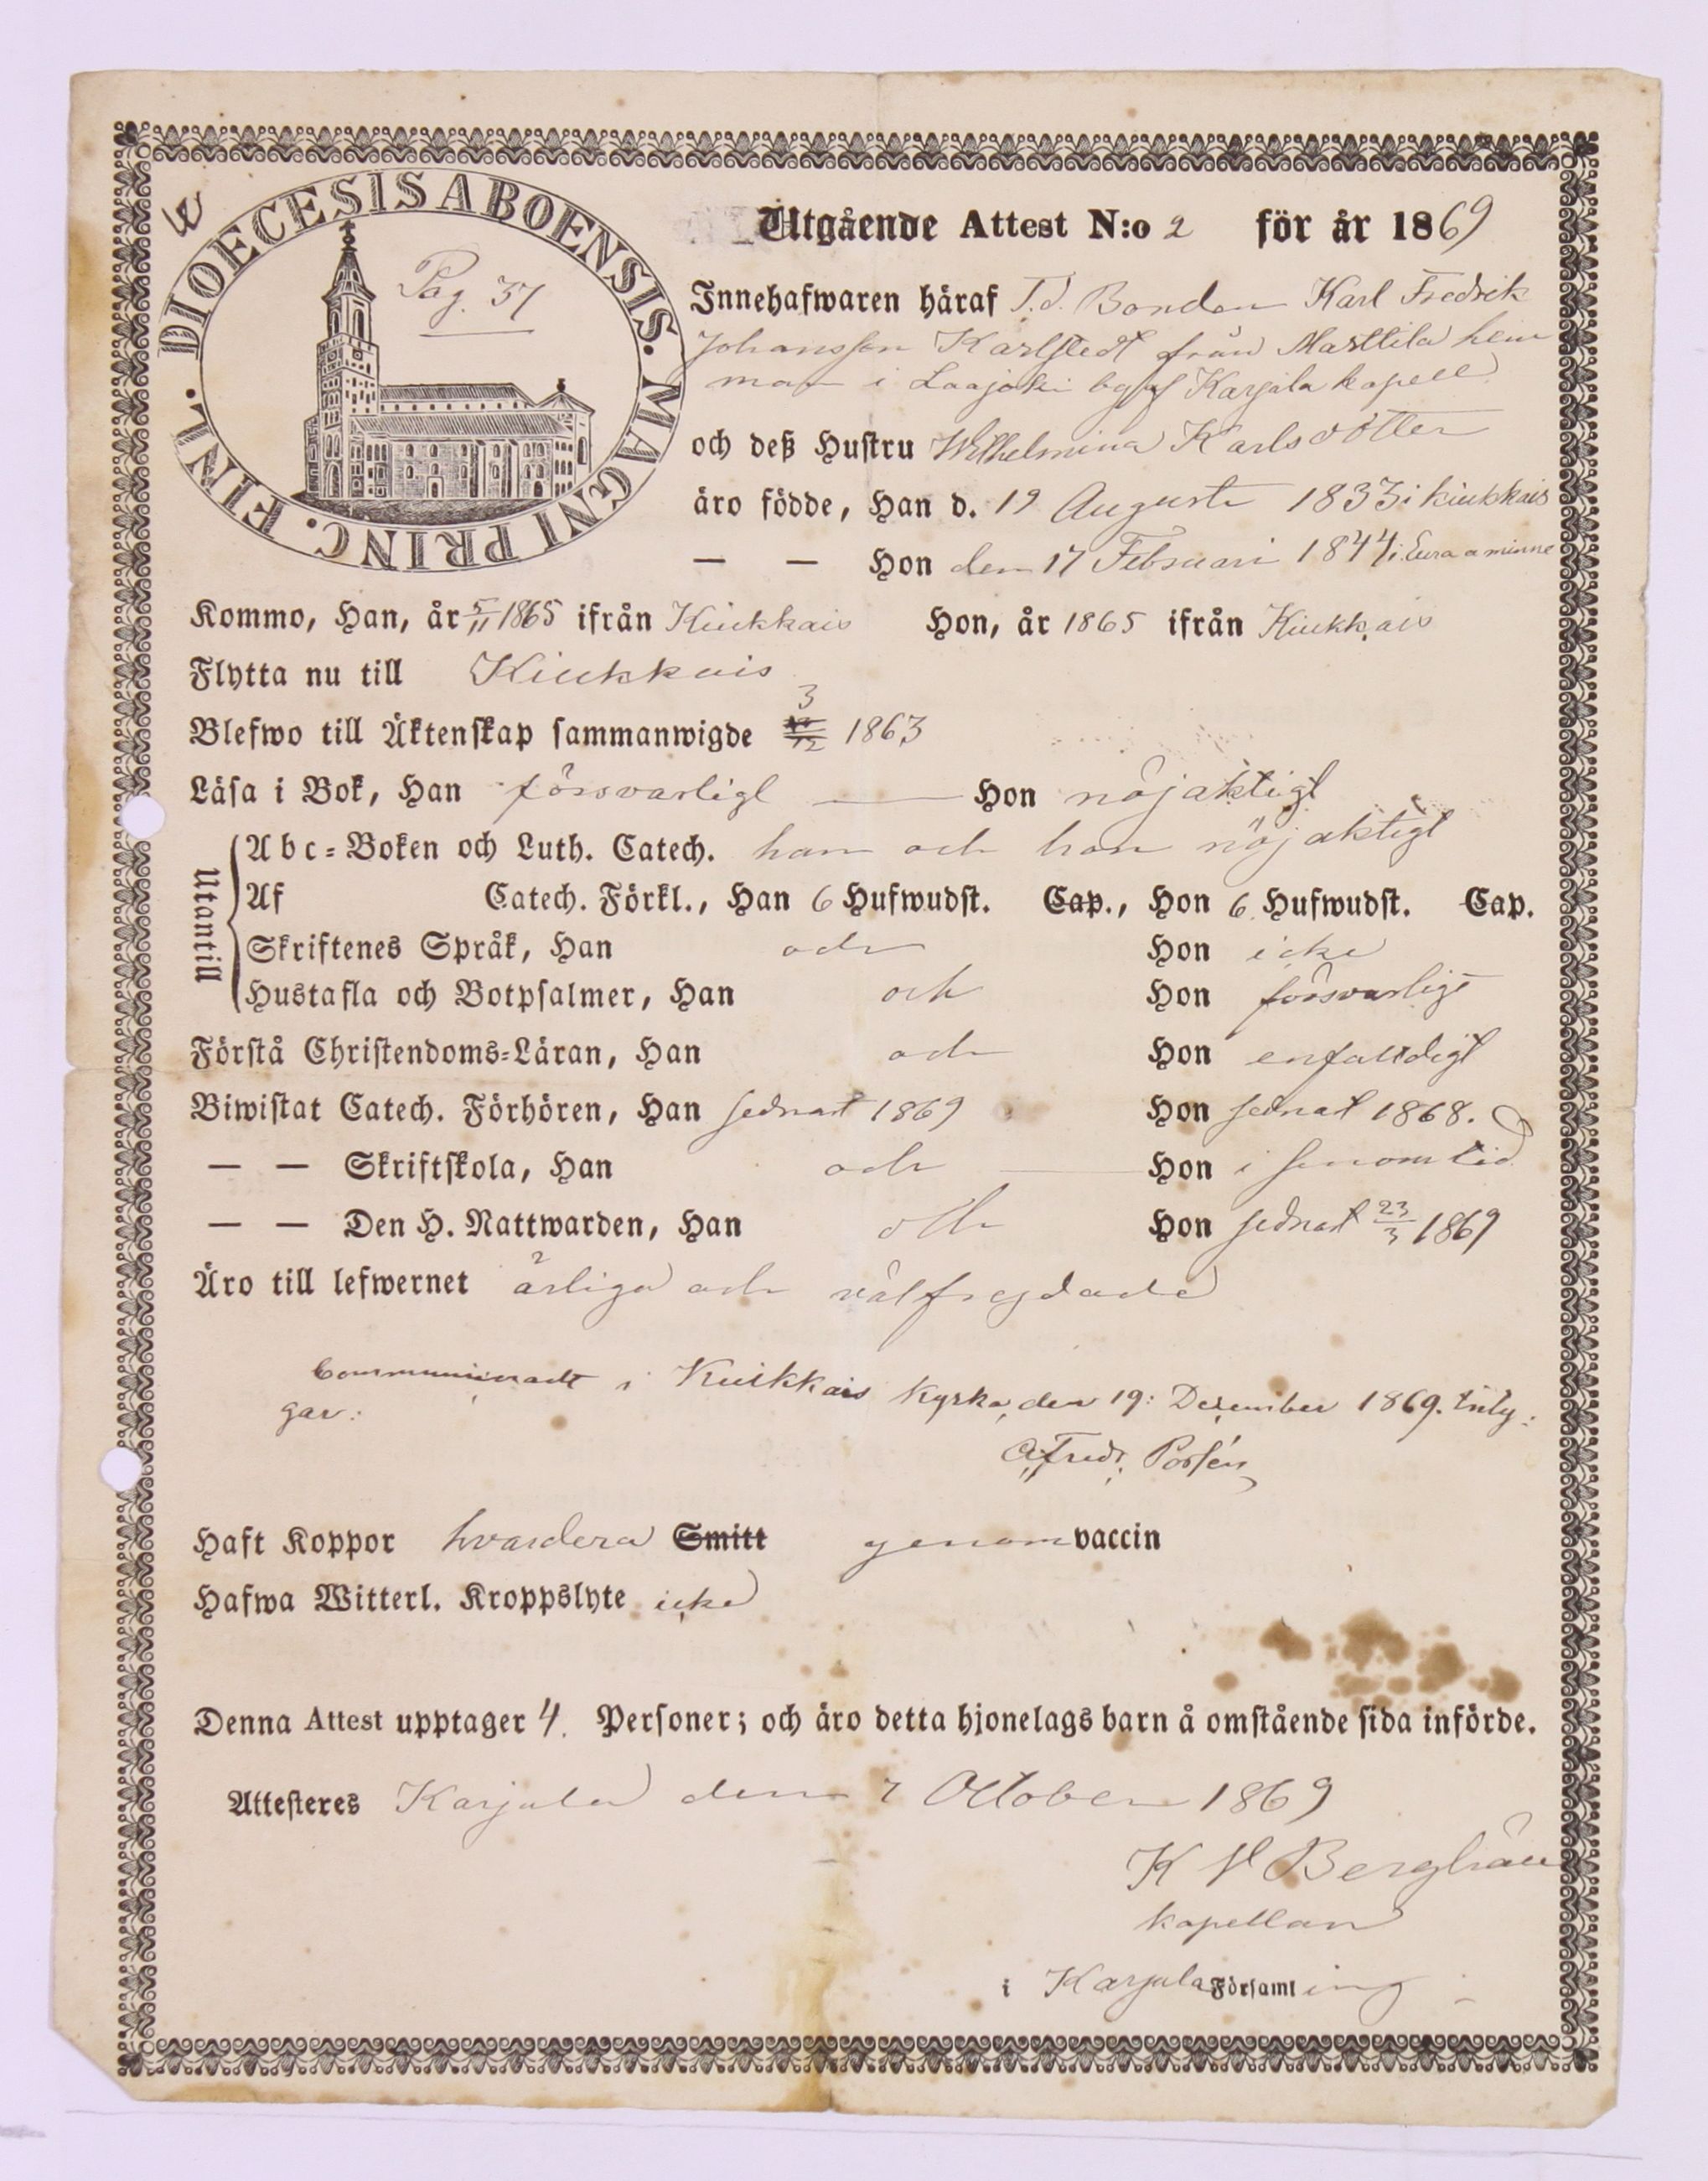 DIOECESIS ABOENSIS. MAGNI PRINC. FINL.
Pag. 37
Utgående Attest N:o 2 för år 1869
Innehafwaren häraf T.d. Bonden Karl Fredrik
Johansson Karlstedt från Marttila hem
man i Laajoki by af Karjala kapell
och deß Hustru Wilhelmina Karlsdotter
äro födde, Han d. 19 Augusti 1833 i Kiukkais
— — Hon den 17 Februari 1844 i Euraaminne
Kommo, Han, år 5/11 1865 ifrån Kiukkais Hon, år 1865 ifrån Kiukkais
Flytta nu till Kiukkais
3
Blefwo till Äktenskap sammanwigde 12 1863
Läsa i Bok, Han försvarligt — Hon nöjaktigt
Utantill
Abc-Boken och Luth. Catech. han och hon nöjaktigt
Af Catech. Förkl., Han 6 Hufwudst. Cap., Hon 6 Hufwudst. Cap.
Skriftenes Språk, Han och Hon icke
Hustafla och Botpsalmer, Han och Hon försvarligt
Förstå Christendoms-Läran, Han och Hon enfaldigt
Biwistat Catech. Förhören, Han sednast 1869 Hon sednast 1868.
— — Skriftskola, Han och — Hon i sinom tid
— — Den H. Nattwarden, Han och Hon sednast 23/3 1869
Äro till lefwernet ärliga och välfrejdade
Communiceradt i Kiukkais Kyrka, den 19: December 1869. Inty:
gar:
Fredr:
Haft Koppor hvardera Smitt genom vaccin
Hafwa Witterl. Kroppslyte icke
Denna Attest upptager 4. Personer; och äro detta hjonelags barn å omstående sida införde.
Attesteres Karjala den 7 October 1869
K
kapellan
i Karjala Församling